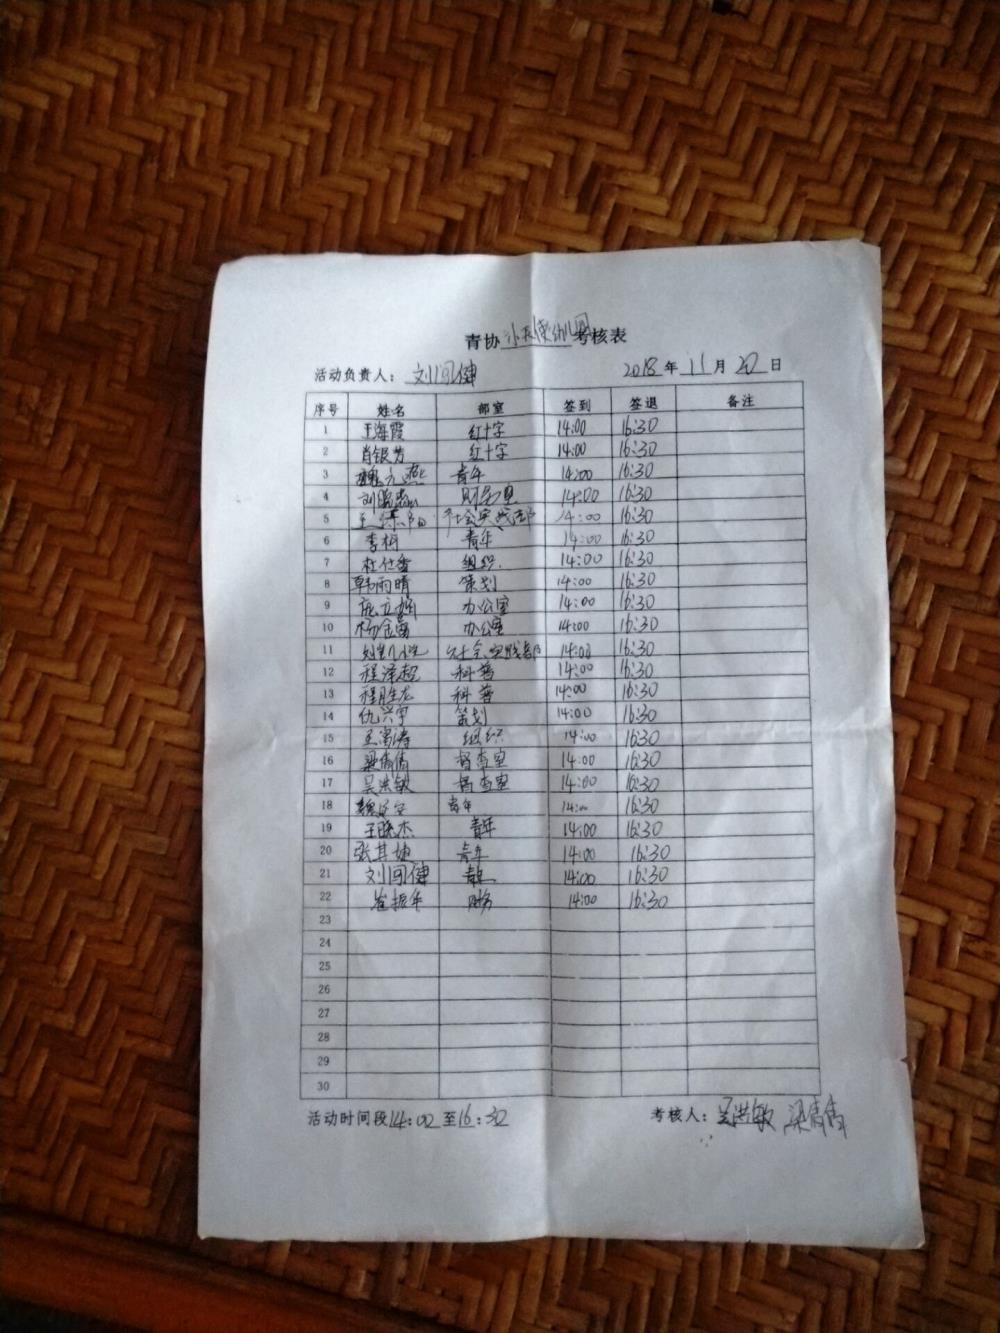 青协小天使幼儿园考核表
活动负责人：刘闯健 2018年11月20日
序号 姓名 部室 签到 签退 备注
1 王海霞 红十字 14:00 16:30
2 肖银芳 红十字 14:00 16:30
3 青年 14:00 16:30
4 14:00 16:30
5 社会实践部 14:00 16:30
6 李柯 青年 14:00 16:30
7 杜仕香 组织 14:00 16:30
8 韩雨晴 策划 14:00 16:30
9 庞立娟 办公室 14:00 16:30
10 杨金富 办公室 14:00 16:30
11 社会实践部 14:00 16:30
12 程泽超 科普 14:00 16:30
13 程胜龙 科普 14:00 16:30
14 仇兴宇 策划 14:00 16:30
15 组织 14:00 16:30
16 梁倩倩 督查室 14:00 16:30
17 吴洪敏 督查室 14:00 16:30
18 青年 14:00 16:30
19 王晓杰 青年 14:00 16:30
20 张其婕 青年 14:00 16:30
21 刘闯健 14:00 16:30
22 崔振华 财务 14:00 16:30
23
24
25
26
27
28
29
30
活动时间段14:00至16:30 考核人：吴洪敏 梁倩倩